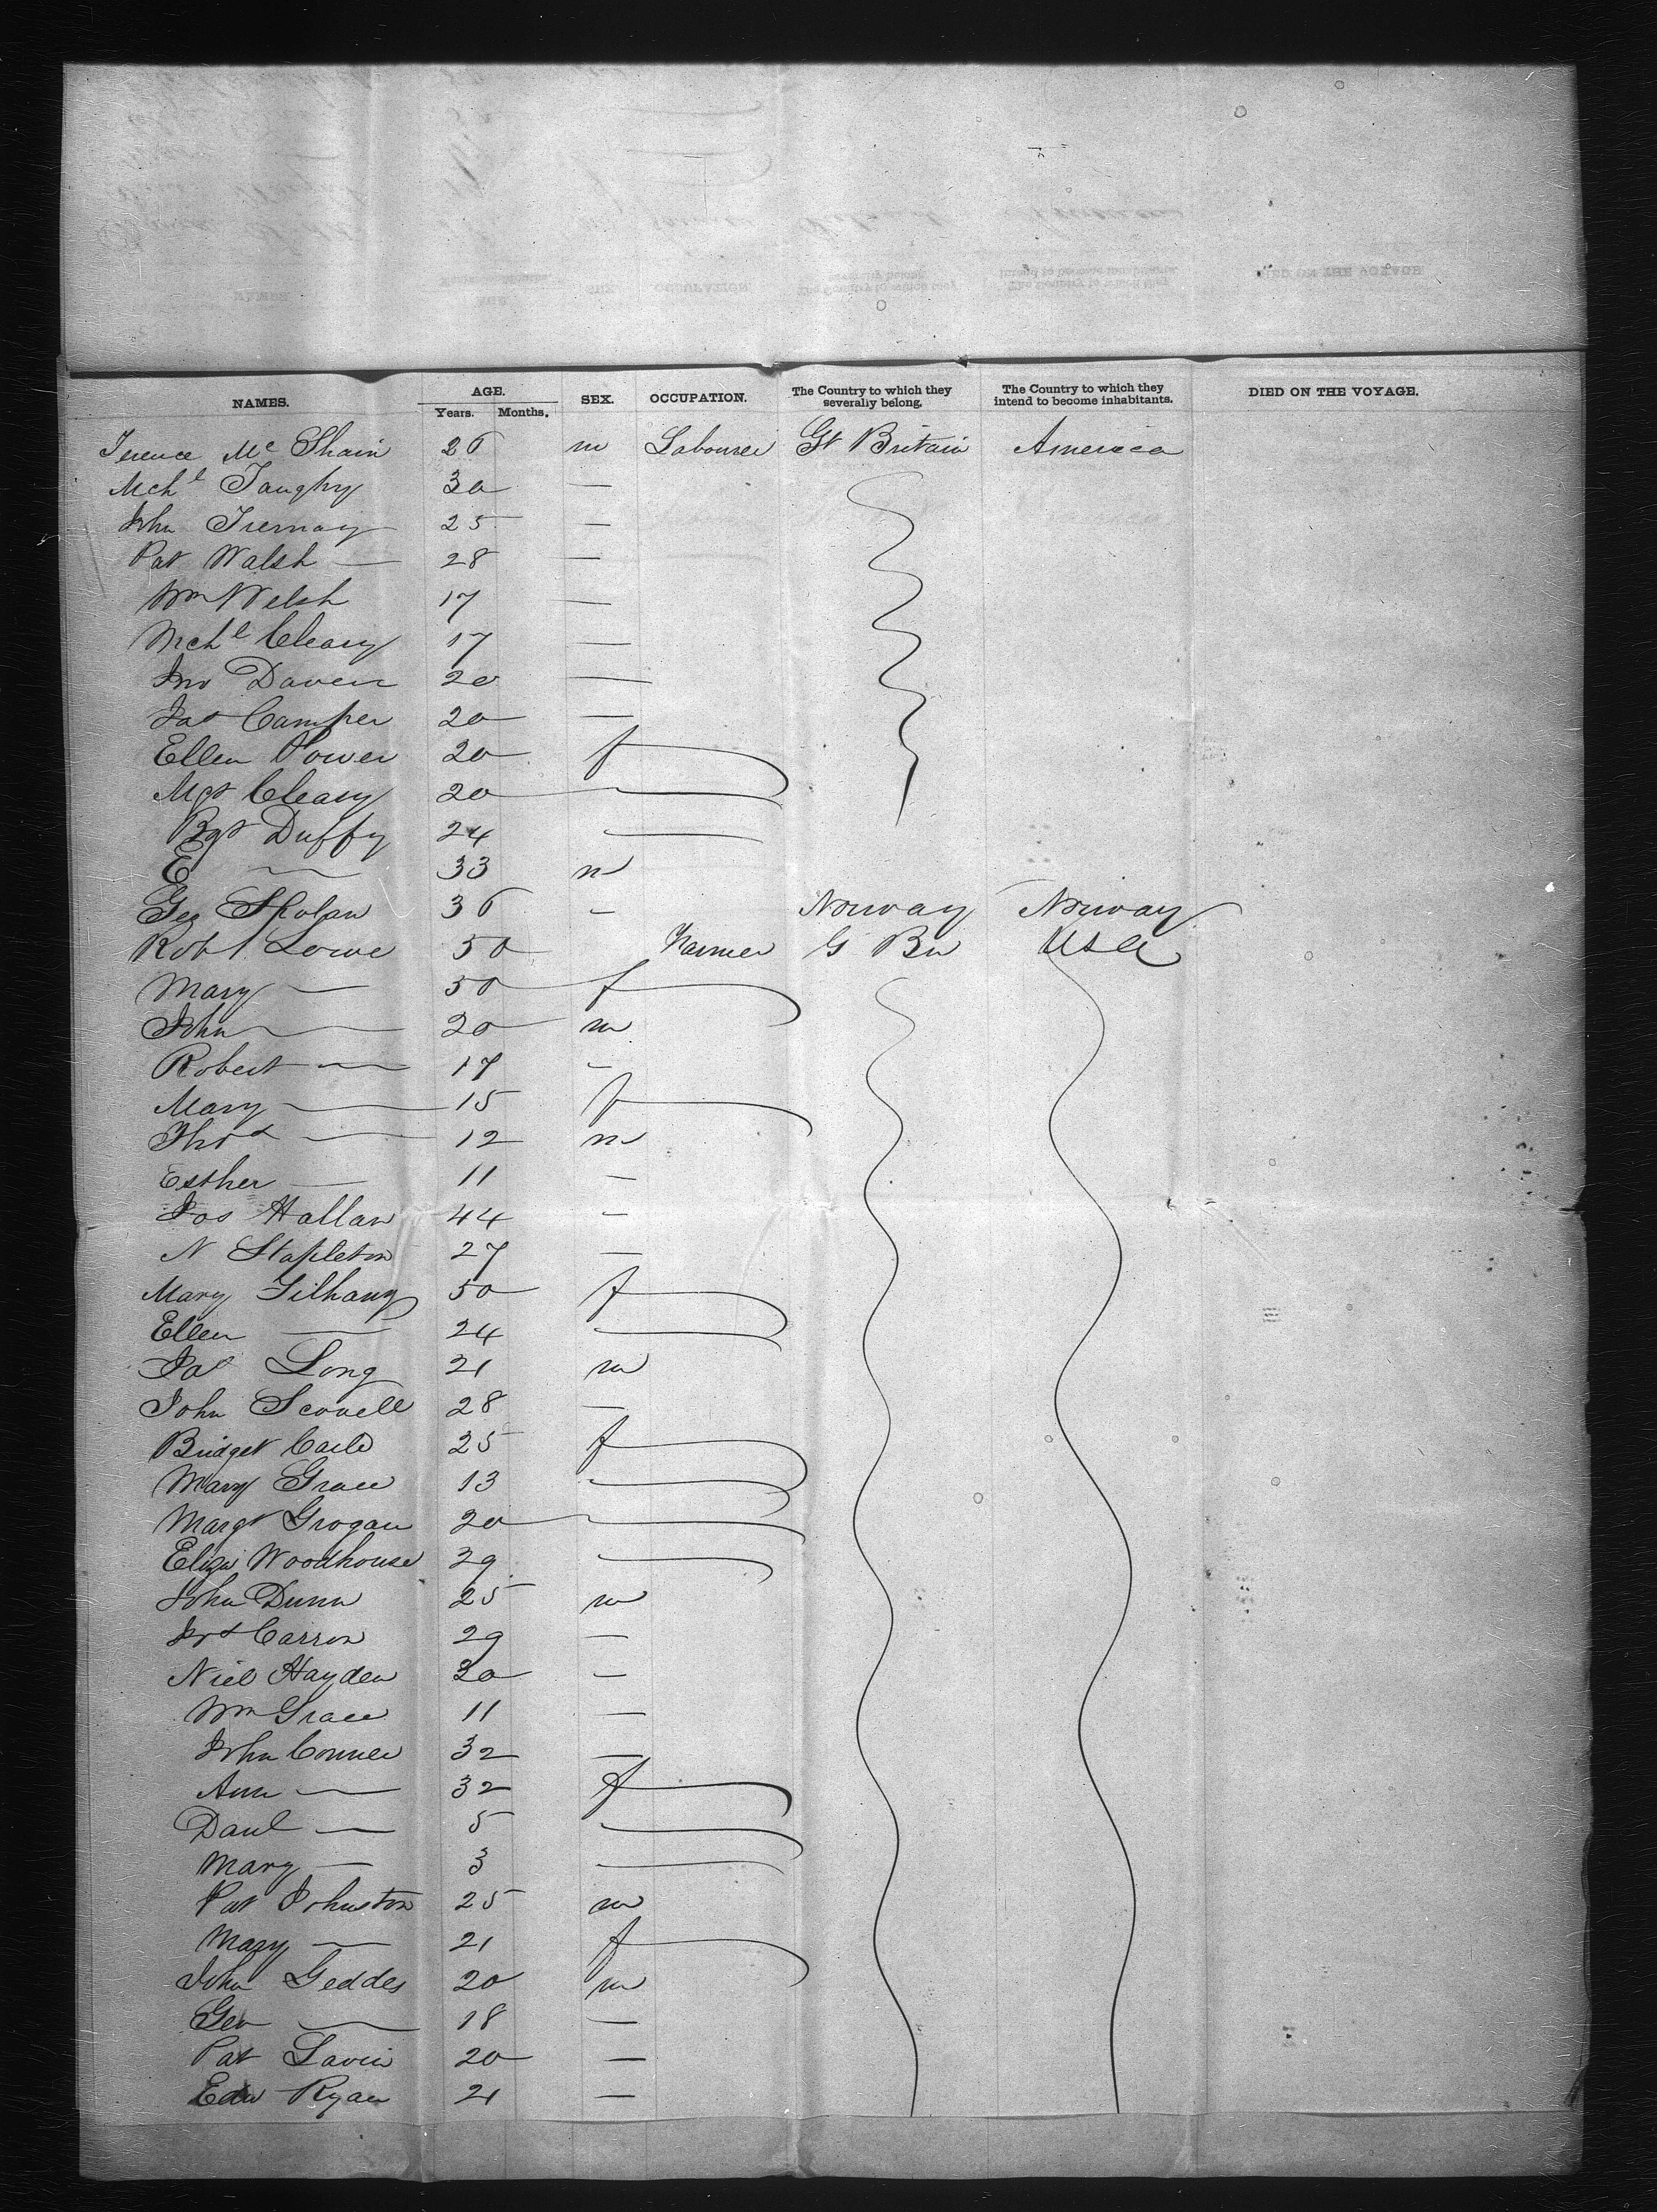 NAMES. AGE. Years. Months. SEX. OCCUPATION. The Country to which they severally belong. The Country to which they intend to become inhabitants. DIED ON THE VOYAGE.
Terence Mc Shain 26 m Labourer Gt Britain America
Mchl 30 —
John 25 —
Pat Walsh — 28 —
Wm Welsh 17 —
Mchl Cleary 17 —
Jno Daven 20 —
Jas Camper 20 —
Ellen Power 20 f
Mgt Cleary 20 —
Bgt Duffy 24 —
E — 33 m
Geo 36 - Norway Norway
Robt Lowe 50 Farmer G Bn USA
Mary — 50 f
John — 20 m
Robert — 17 -
Mary — 15 f
Thos — 12 m
Esther — 11 —
Jos Hallan 44 -
N Stapleton 27 —
Mary 50 f
Ellen — 24 —
Jas Long 21 m
John Scovell 28 —
Bridget 25 f
Mary Grace 13 —
Margt Grogan 20 —
Eliza Woodhouse 29 —
John Dunn 25 m
Jos Carson 29 —
Niel Hayden 30 —
Wm Grace 11 —
John Conner 32 —
Ann — 32 f
Danl — 5 —
Mary — 3 —
Pat Johnston 25 m
Mary — 21 f
John Geddes 20 m
Geo — 18 —
Pat Lavin 20 —
Edw Ryan 21 —